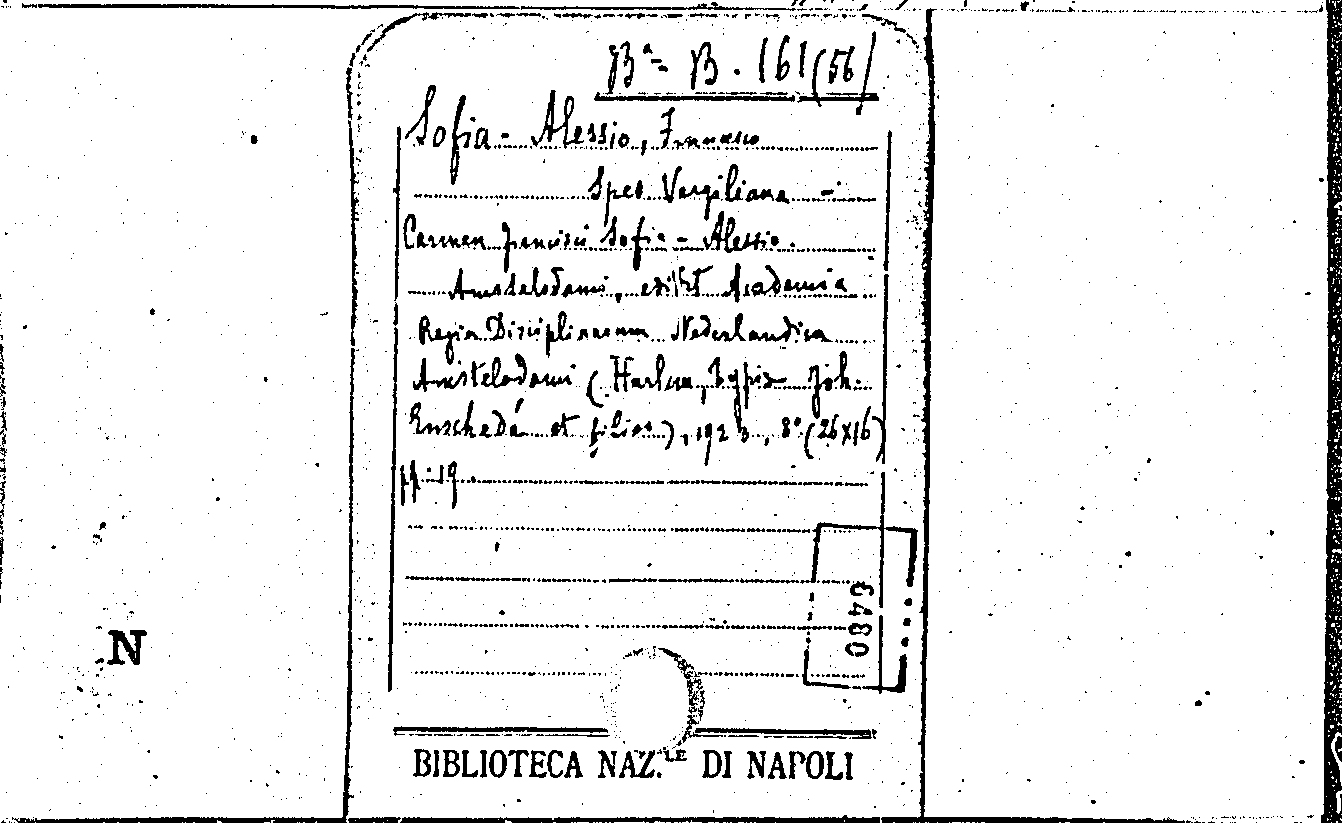 Bª B. 161(56)
Sofia-Alessio, Francesco
Spes Vergiliana -
Carmen Francisci Sofia-Alessio.
Amstelodami, edidit Academia
Regia Disciplinarum Nederlandica
Amstelodami (Harlem, typis Joh.
Enschedé et filios), 1923, 8° (26x16)
pp. 19.
6480
N
BIBLIOTECA NAZ.LE DI NAPOLI